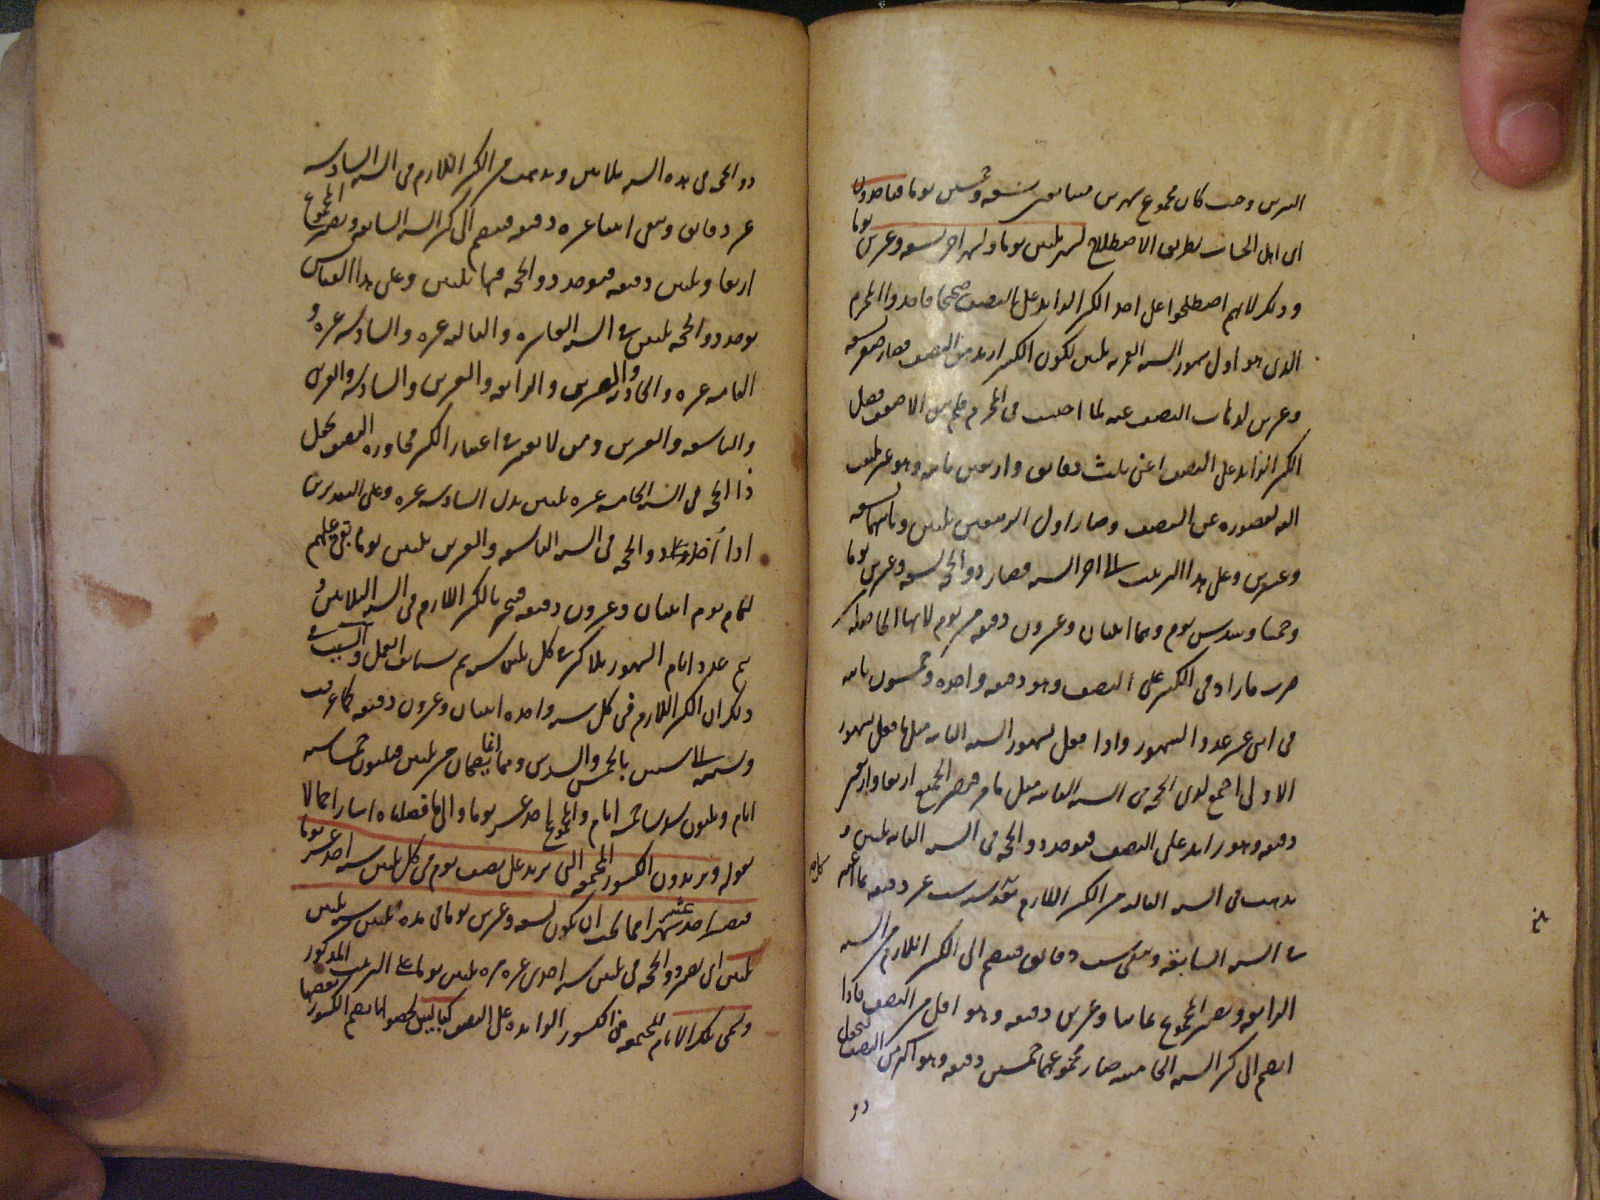 القمرين وحيث كان مجموع شهرين متتاليين تسعة وخمسين يوما فياخذون
اى اهل الحساب بطريق الاصطلاح لشهر ثلثين يوما ولشهر اخر تسعة وعشرين يوما
وذلك لانهم اصطلحوا على اخذ الكسر الزايد على النصف صحيحا فاخذوا المحرم
الذى هو اول شهور السنة القمرية ثلثين لكون الكسر ازيد من النصف فصار صفر تسعة
وعشرين لذهاب النصف عنه لما احتسب فى المحرم فلم يبق الا ضعف فضل
الكسر الزايد على النصف اعنى ثلث دقائق واربعين ثانية
عن النصف وصار اول الربيعين ثلثين وثانيهما تسعة
وعشرين وعلى هذا الترتيب الى اخر السنة فصار ذو الحجة تسعة وعشرين يوما
وخمسا وسدس يوم وهما اثنتان وعشرون دقيقة من يوم لانها الحاصلة من
ضرب ما زاد فى الكسر على النصف وهو دقيقة واحدة وخمسون ثانية
فى اثنى عشر عدد الشهور واذا فعل لشهور السنة الثانية مثل ما فعل لشهور
الاولى اجتمع لذى الحجة من السنة الثانية مثل ما مر فيصير الجميع اربعا واربعين
دقيقة وهو زايد على النصف فيوخذ ذو الحجة فى السنة الثانية ثلثين و
يذهب فى السنة الثالثة من الكسر اللازم ست عشر دقيقة
فى السنة السابقة ويبقى ست دقائق فيضم الى الكسر اللازم من السنة
الرابعة ويصير المجموع ثمانيا وعشرين دقيقة وهو اقل من النصف فاذا
انضم الى كسر السنة الخامسة صار مجموعهما خمسين دقيقة وهو اكثر من النصف
ذو
ذو الحجة فى هذه السنة ثلاثين ويذهب من الكسر اللازم فى السنة السادسة
عشر دقائق ويبقى اثنتا عشرة دقيقة فيضم الى كسر السنة السابعة ويصير المجموع
اربعا وثلثين دقيقة فيوخذ ذو الحجة فيها ثلثين وعلى هذا القياس
يوخذ ذو الحجة ثلثين فى السنة العاشرة والثالثة عشرة والسادسة عشرة و
الثامنة عشرة والحادية والعشرين والرابعة والعشرين والسادسة والعشرين
والتاسعة والعشرين ومن لا يعتبر فى اعتبار الكسر مجاوزة النصف يجعل
ذا الحجة فى السنة الخامسة عشرة ثلثين بدل السادسة عشرة وعلى التقديرين
اذا اخذ ذو الحجة فى السنة التاسعة والعشرين ثلثين يوما بقى عليهم
لتمام يوم اثنتان وعشرون دقيقة فيجبر بالكسر اللازم فى السنة الثلاثين و
يتم عدد ايام الشهور بلا كسر فى كل ثلثين سنة ثم يستانف العمل والسبب فى
ذلك ان الكسر اللازم فى كل سنة واحدة اثنتان وعشرون دقيقة كما عرفت
بالخمس والسدس وهما انما يصحان من ثلثين فثلثون خمسا ستة
ايام وثلثون سدسا خمسة ايام والمجموع احد عشر يوما والى ما فصلناه اشار اجمالا
بقوله ويزيدون الكسور المجتمعة التى تزيد على نصف يوم فى كل ثلثين سنة احد عشر يوما
فيصير احد عشر شهرا مما يجب ان يكون تسعة وعشرين يوما فى مدة ثلثين سنة ثلثين
ثلثين اى يصير ذو الحجة فى ثلثين سنة احدى عشرة مرة ثلثين يوما على الترتيب المذكور
وتسمى تلك الايام المجتمعة من الكسور الزايدة على النصف كبايس لحصولها بضم الكسور بعضها